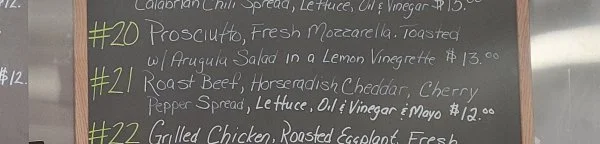 Calabrian Chili Spread, Lettuce, Oil & Vinegar $15.
12.
#20 Prosciutto, Fresh Mozzarella. Toasted
w/ Arugula Salad in a Lemon Vinegrette $13.00
$12.
#21 Roast Beef, Horseradish Cheddar, Cherry
Pepper Spread, Lettuce, Oil & Vinegar & Mayo $12.00
#22 Grilled Chicken, Roasted Eggplant, Fresh